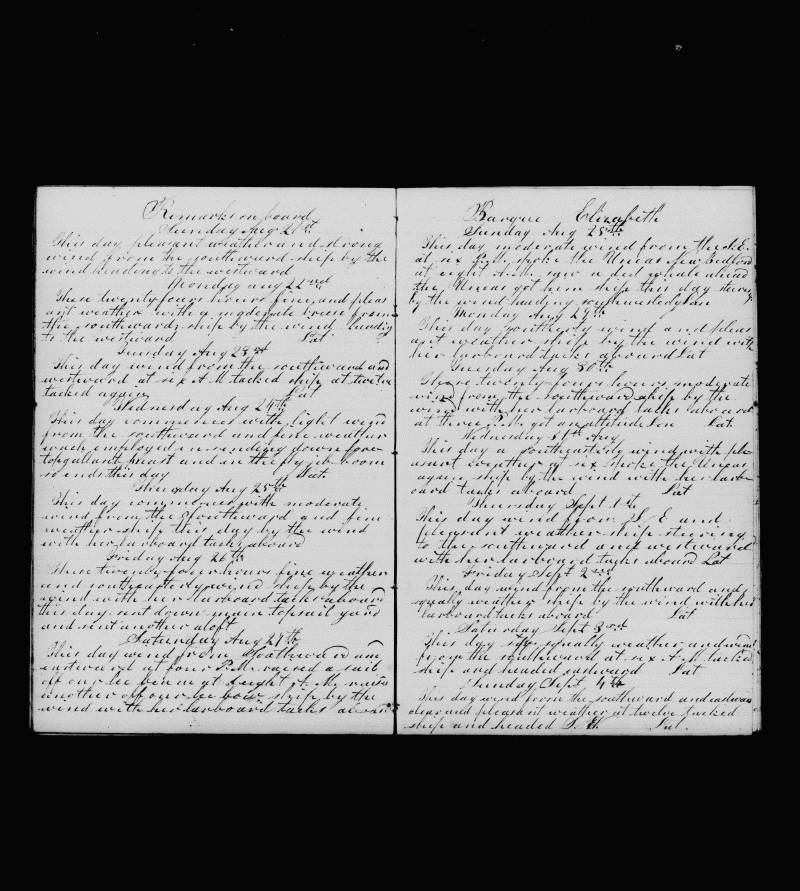 Remarks on board
Sunday Aug 21st
This day pleasant weather and strong
wind from the southward ship by the
wind heading to the westward
Monday aug 22nd
These twenty fours hours fine and pleas
ant weather with a moderate breeze from
the southward ship by the wind heading
to the westward Lat
Tuesday Aug 23rd
This day wind from the southward and
westward at six A.M. tacked ship at twelve
tacked again Lat
Wednesday Aug 24th
This day commences with light wind
from the southward and fine weather
employed in sending down fore
topgallant mast and in the fly jib boom
so ends this day Lat.
Thursday Aug 25th
This day commences with moderate
wind from the Southward and fine
weather ship this day by the wind
with her larboard tacks aboard
Friday Aug 26th
These twenty-four hours fine weather
and southeasterly wind ship by the
wind with her larboard tacks aboard
this day sent down main topsail yard
and sent another aloft
Saturday Aug 27th
This day wind from Southward and
eastward at four P.M. raised a sail
off our lee beam at eight A.M. raised
another off our lee bow ship by the
wind with her larboard tacks aboard
Barque Elizabeth
Sunday Aug 28th
This day moderate wind from the S.E.
at six P.M. spoke the Uncas New Bedford
at eight A.M. saw a ded whale ahead
the Uncas got him ship this day steering
by the wind heading southwesterly Lat
Monday Aug 29th
This day southerly wind and pleas
ant weather ship by the wind with
her larboard tacks aboard Lat
Tuesday Aug 30th
These twenty-fours hours moderate
wind from the southward ship by the
wind with her larboard tacks aboard
at three P.M. got an altitude Lon Lat.
Wednesday 31st Aug
This day a southeasterly wind with ple
asant weather at six spoke the Uncas
again ship by the wind with her larb
oard tacks aboard Lat
Thursday Sept 1st
This day wind from S.E and
pleasant weather ship steering
to the southward and westward
with her larboard tacks aboard Lat
Friday Sept 2nd
This day wind from the southward and
squaly weather ship by the wind with her
larboard tacks aboard Lat
Saturday Sept 3rd
This day squally weather and wind
from the southward at six A.M. tacked
ship and headed Lat
Sunday Sept 4th
This day wind from the southward and eastward
clear and pleasant weather at twelve tacked
ship and headed S. W. Lat.